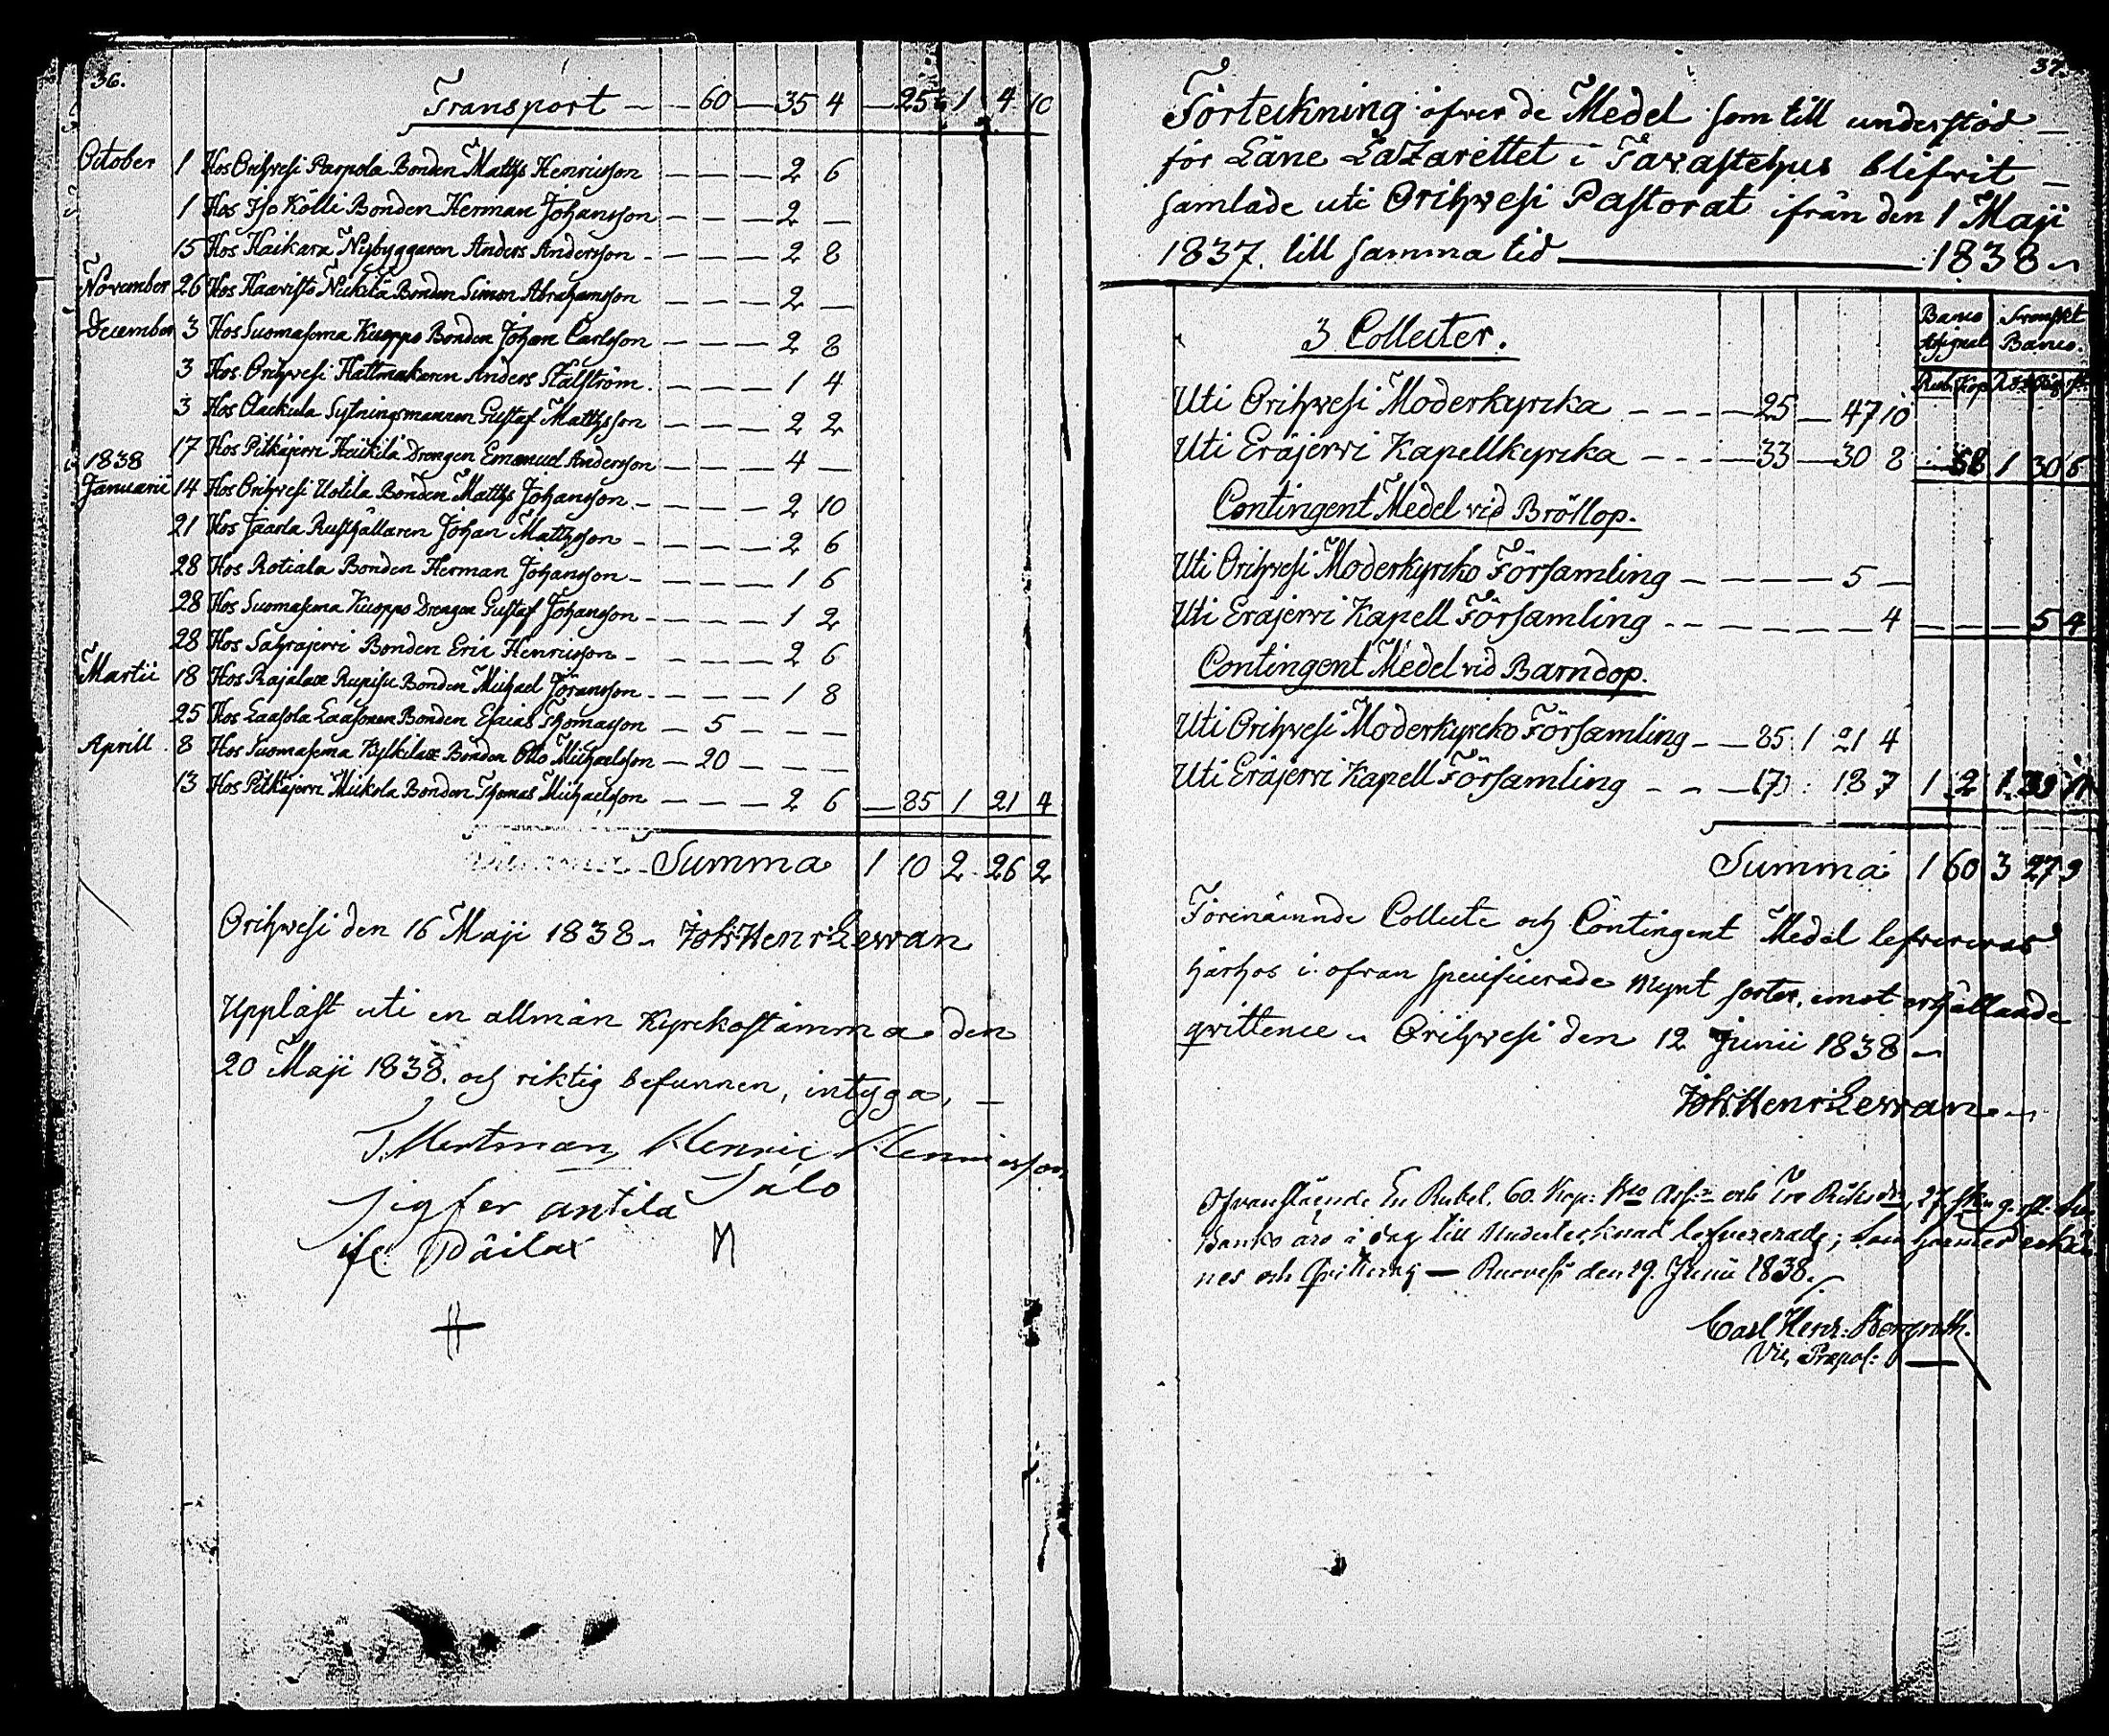 36.
Transport — — 60 — 35 4 — 25 1 4 10
October 1 Hos Orihvesi Parpola Bonden Matths Henricsson — — — 2 6
1 Hos Iso Kölli Bonden Herman Johansson — — — 2 —
15 Hos Haikara Nybyggaren Anders Andersson — — — 2 8
November 26 Hos Haavisto Nickilä Bonden Simon Abrahamsson — — — 2 —
December 3 Hos Suomasema Kuoppo Bonden Johan Carlsson — — — 2 8
3 Hos Orihvesi Hattmakaren Anders Stålström — — — 1 4
3 Hos Sytningsmannen Gustaf Matthsson — — — 2 2
17 Hos Pitkäjervi Heikilä Drengen Emanuel Andersson — — — 4 —
1838
Januarii 14 Hos Orihvesi Uotila Bonden Matths Johansson — — — 2 10
21 Hos Jaarla Rusthållaren Johan Matthsson — — — 2 6
28 Hos Rotiala Bonden Herman Johansson — — — 1 6
28 Hos Suomasema Kuoppo Drengen Gustaf Johansson — — — 1 2
28 Hos Sahrajervi Bonden Eric Henricsson — — — 2 6
Martii 18 Hos Rajalax Rupisu Bonden Michael Jöransson — — — 1 8
25 Hos Laasola Laasonen Bonden Esaias Thomasson — 5 — — —
Aprill 8 Hos Suomasema Kylkilax Bonden Otto Michaelsson — 20 — — —
13 Hos Pitkäjervi Mickola Bonden Thomas Michaelsson — — — 2 6 — 85 1 21 4
Summa 1 10 2 26 2
Orihvesi den 16 Maji 1838 Joh: Henr: Levvan
Uppläst uti en allmän Kyrckostämma den
20 Maji 1838. och riktig befunnen, intyga, —
J. Mertman, Henric Henricsson
Salo
Sigfer antila
Päilax
37.
Förteckning öfver de Medel som till understöd —
för Läne Lazarettet i Tavastehus blifvit —
samlade uti Orihvesi Pastorat ifrån den 1 Maji
1837. till samma tid — 1838
Banco Assignat. Svenskt Banco.
3 Collecter.
Rub. Kop.
Uti Orihvesi Moderkyrcka — — — 25 — 47 10
Uti Eräjervi Kapellkyrcka — — — 33 — 30 8 — 58 1 30 6
Contingent Medel vid Bröllop.
Uti Orihvesi Moderkyrcko Församling — — — — 5 —
Uti Eräjervi Kapell Församling — — — — — — 4 — — — 5 4
Contingent Medel vid Barndop.
Uti Orihvesi Moderkyrcko Församling — — 85 1 21 4
Uti Eräjervi Kapell Församling — — — 17 18 7 1 2 1 39 11
Summa 1 60 3 27 9
Förenämnde Collecte och Contingent Medel lefvereras
härhos i ofvan specificerade mynt sorter, emot erhållande
qvittence Orihvesi den 12 Junii 1838
Joh: Henr: Levvan
Ofvanstående En Rubel, 60. Kop: Bco Ass: och Tre Riksdr, 27. sk. 9. rst.
Banko äro i dag till Undertecknad lefvererade; som härmed erkän-
nes och Qvitteras — Ruovesi den 19. Junii 1838.
Carl Henr: Bergroth.
Vic, Præpos: